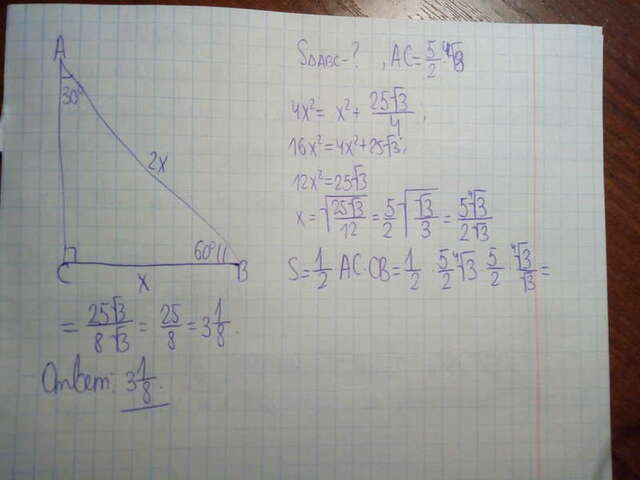 A
30°
2x
60°
C
B
x
S△ABC-? , AC=5/2·⁴√3
4x²= x²+ 25√3/4,
16x²=4x²+25√3;
12x²=25√3
x=√(25√3/12)=5/2√(√3/3)=5⁴√3/2√3
S=1/2 AC·CB=1/2·5/2⁴√3·5/2·⁴√3/√3=
=25√3/8√3=25/8=3 1/8.
Ответ: 3 1/8.